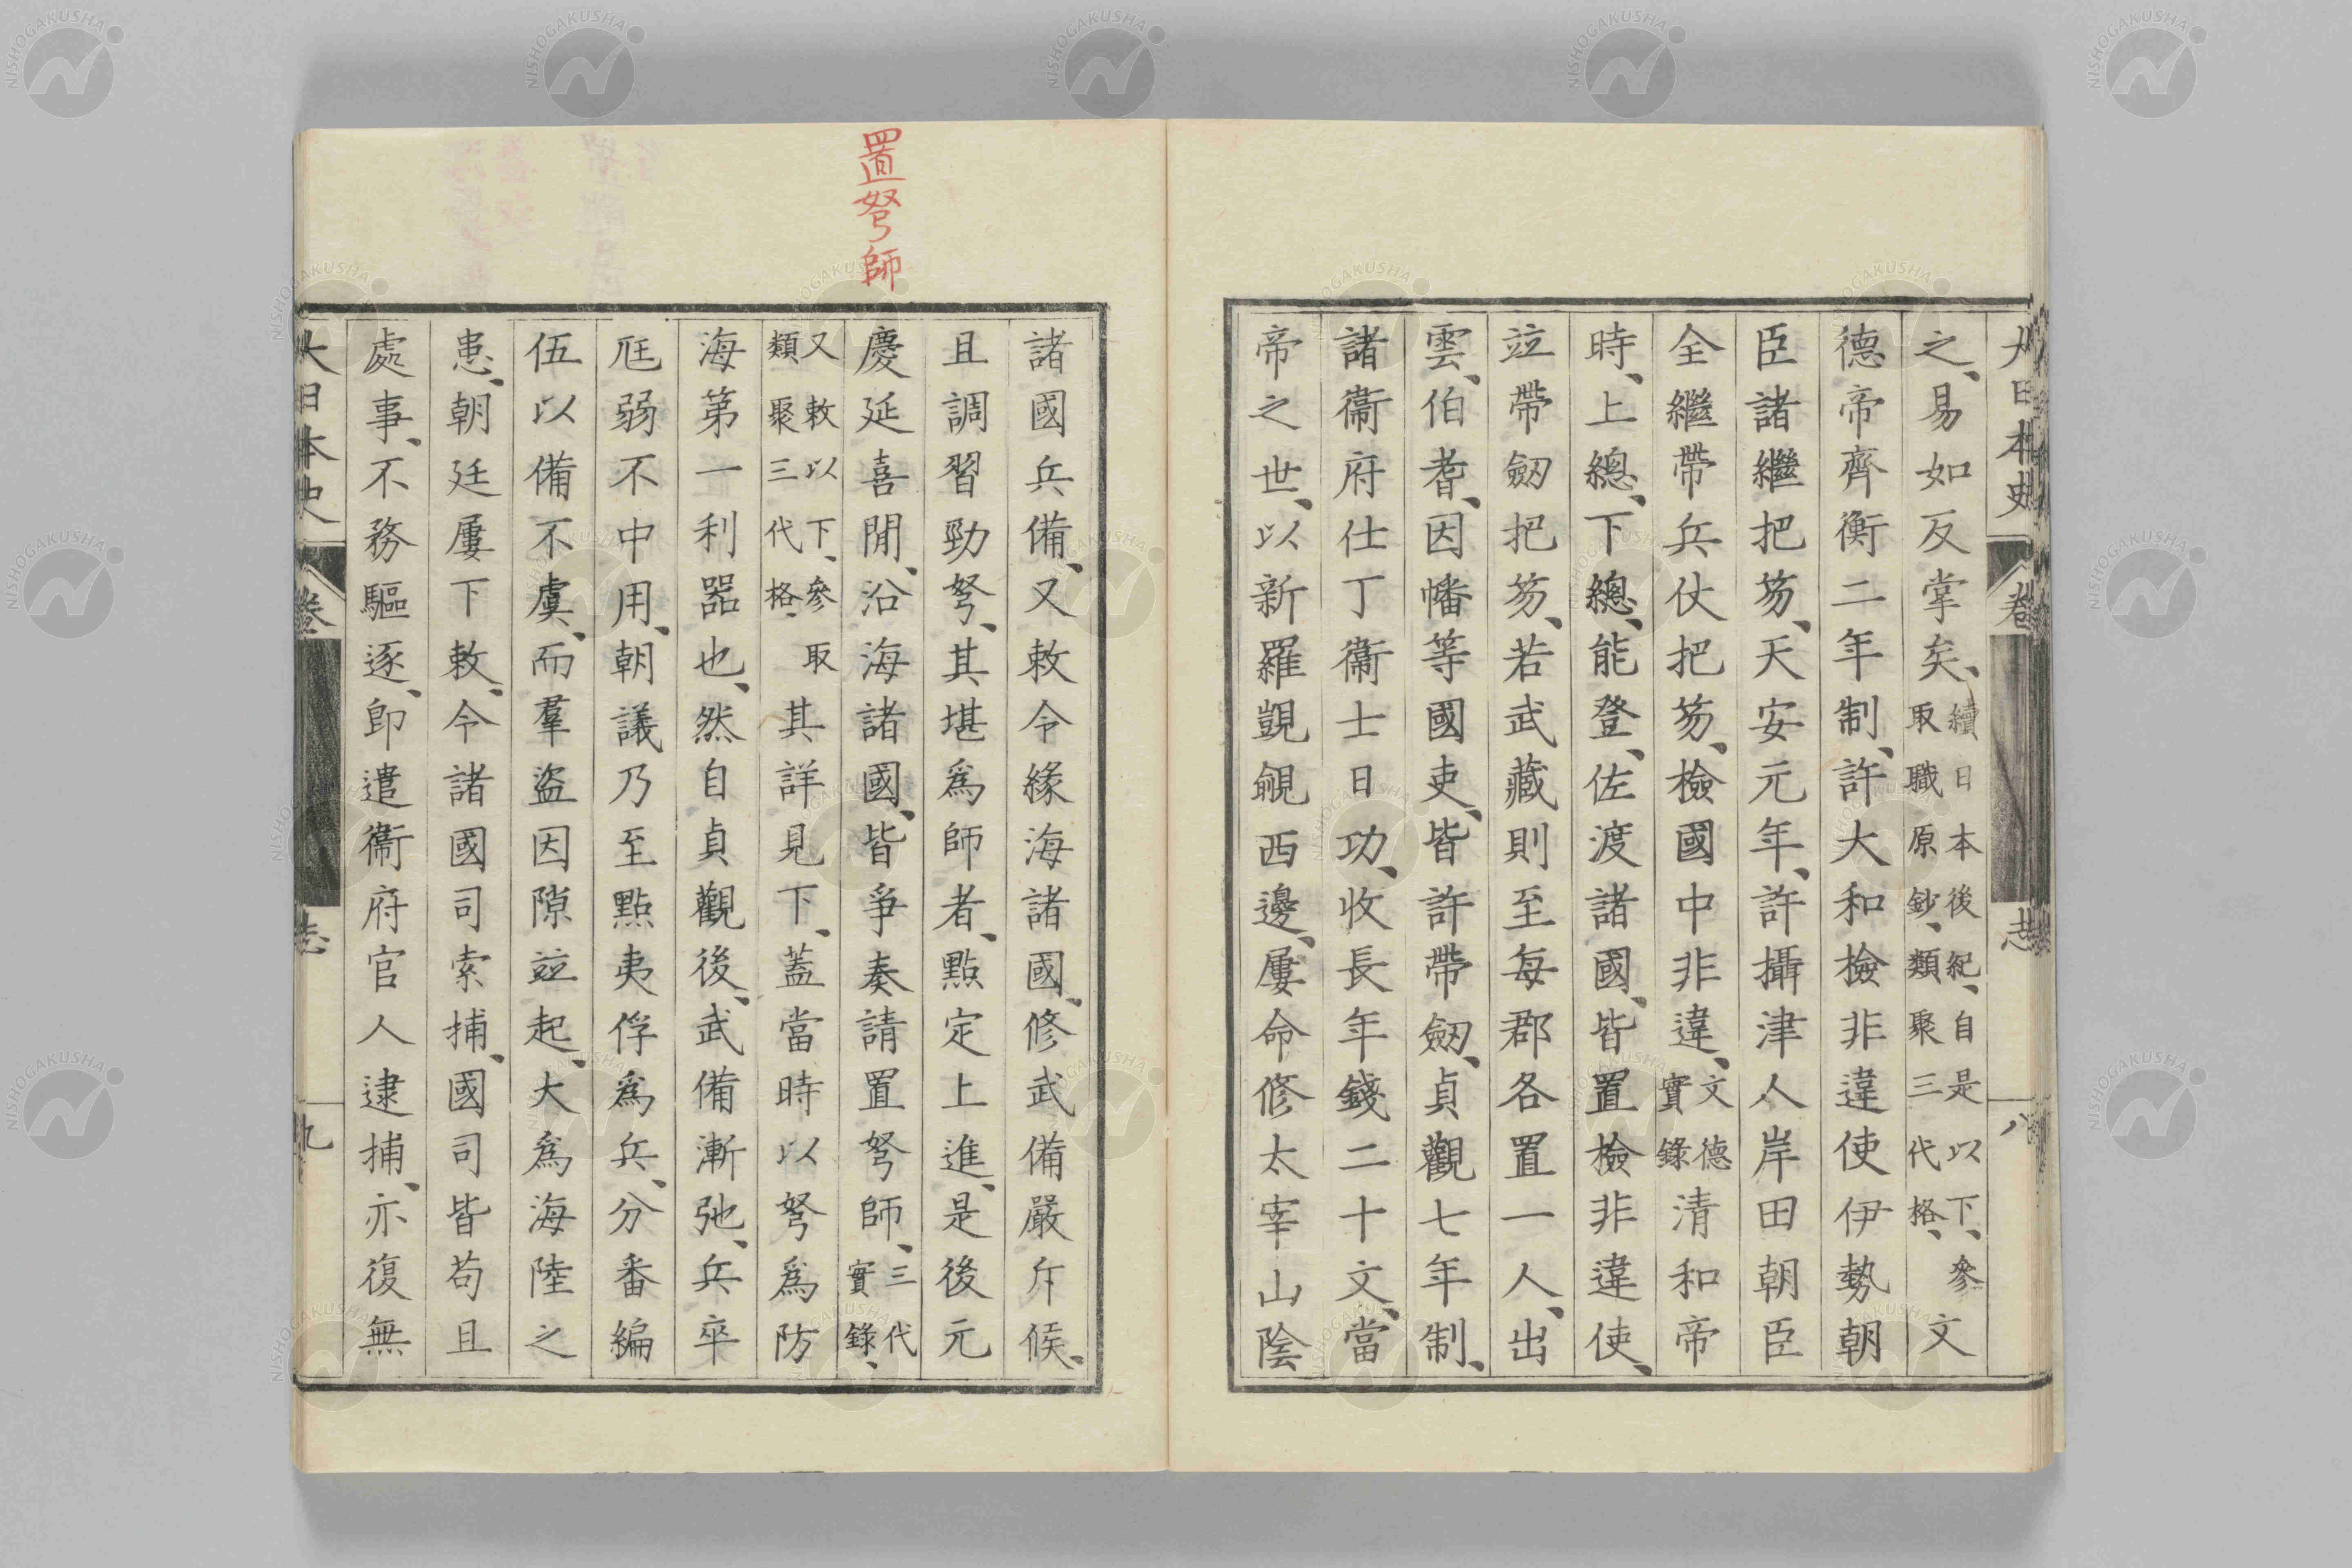 大日本史 卷 志 八
之、易如反掌矣、續日本後紀、自是以下、參取職原鈔、類聚三代格、文
德帝齊衡二年制、許大和檢非違使伊勢朝
臣諸繼把笏、天安元年、許攝津人岸田朝臣
全繼帶兵仗把笏、檢國中非違、文德實錄清和帝
時、上總、下總、能登、佐渡諸國、皆置檢非違使、
竝帶劒把笏、若武藏則至每郡各置一人、出
雲、伯耆、因幡等國吏、皆許帶劒、貞觀七年制、
諸衞府仕丁衞士日功、收長年錢二十文、當
帝之世、以新羅覬覦西邊、屢命修太宰山陰
諸國兵備、又敕令緣海諸國、修武備嚴斥候、
且調習勁弩、其堪爲師者、點定上進、是後元
慶延喜閒、沿海諸國、皆爭奏請置弩師、三代實錄、
又敕以下、參取類聚三代格、其詳見下、蓋當時以弩爲防
海第一利器也、然自貞觀後、武備漸弛、兵卒
尩弱不中用、朝議乃至點夷俘爲兵、分番編
伍以備不虞、而羣盜因隙竝起、大爲海陸之
患、朝廷屢下敕、令諸國司索捕、國司皆苟且
處事、不務驅逐、卽遣衞府官人逮捕、亦復無
大日本史 卷 志 九
置弩師
NISHOGAKUSHA